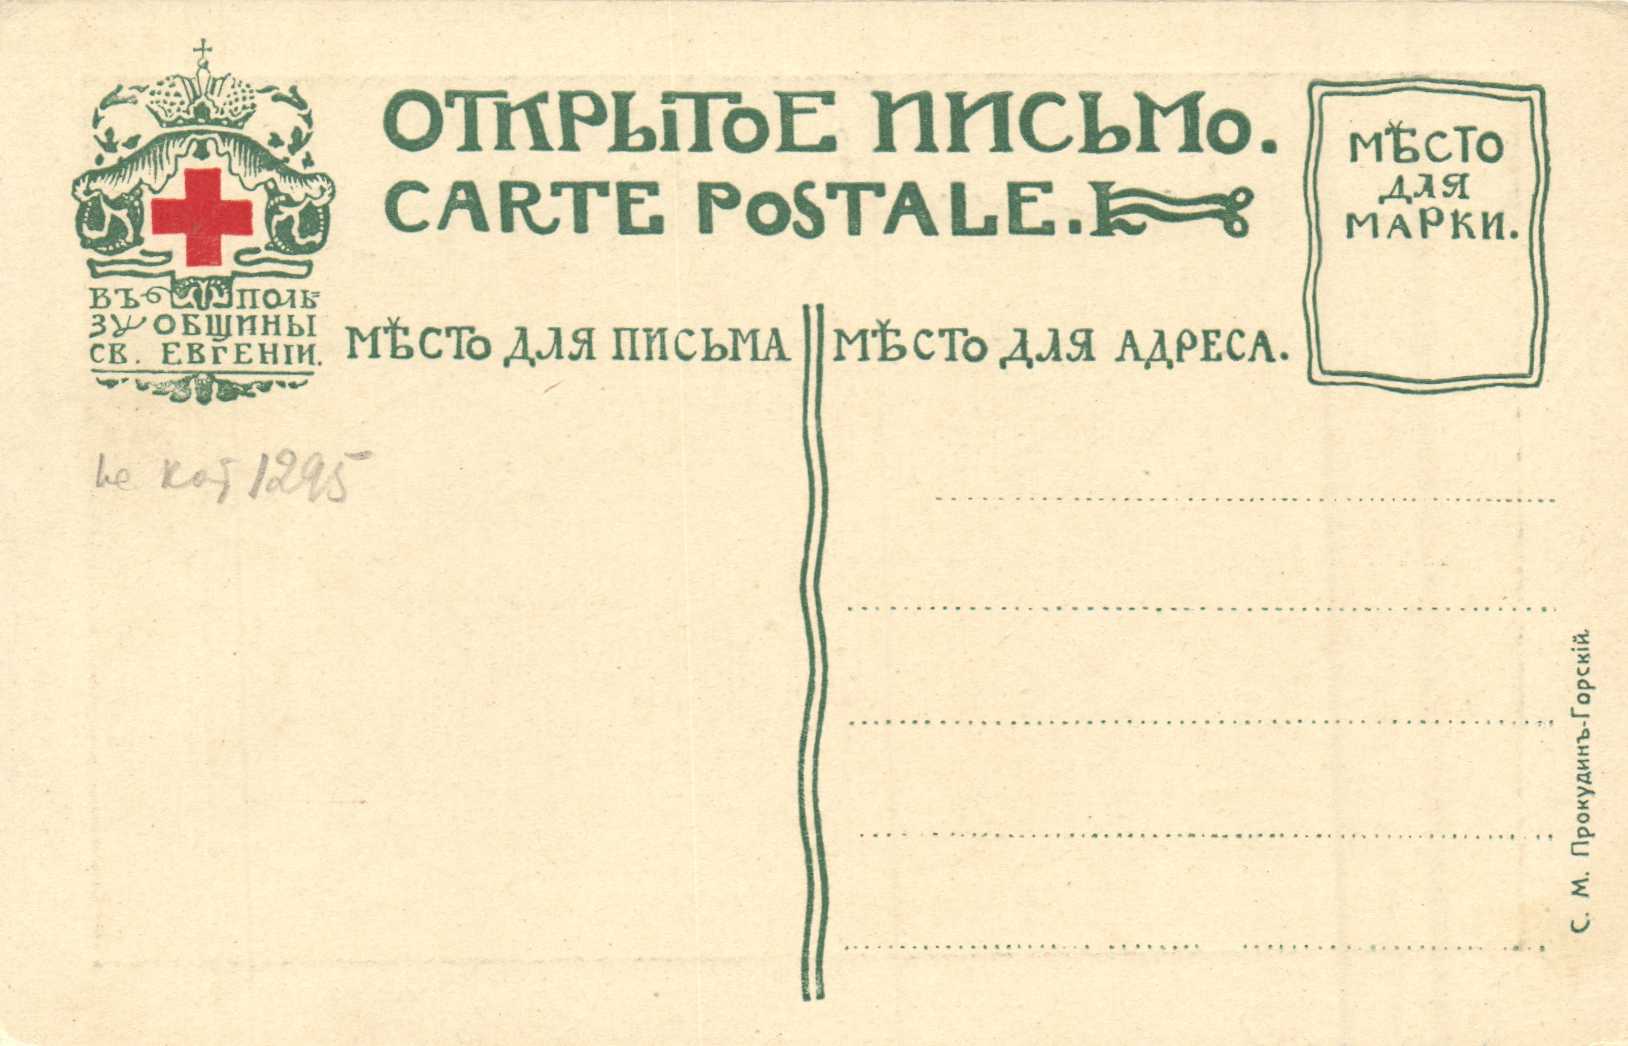 ОТКРЫТОЕ ПИСЬМО.
CARTE POSTALE.
МѢСТО
ДЛЯ
МАРКИ.
ВЪ ПОЛЬ-
ЗУ ОБЩИНЫ
СВ. ЕВГЕНІИ.
МѢСТО ДЛЯ ПИСЬМА
МѢСТО ДЛЯ АДРЕСА.
1295
С. М. Прокудинъ-Горскій